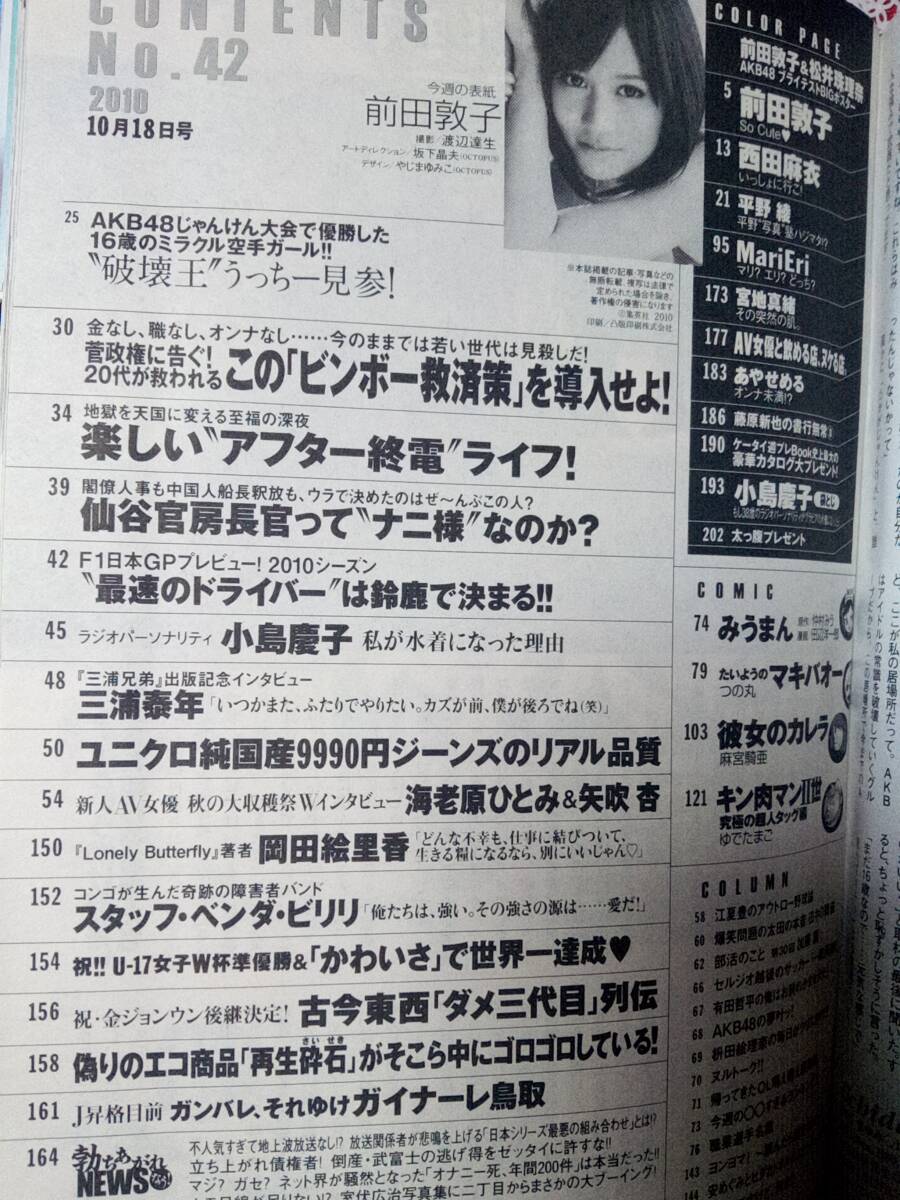 CONTENTS
No.42
2010
10月18日号
今週の表紙
前田敦子
撮影/渡辺達生
アートディレクション/坂下晶夫(OCTOPUS)
デザイン/やじまゆみこ(OCTOPUS)
※本誌掲載の記事・写真などの
無断転載、複写は法律で
定められた場合を除き、
著作権の侵害になります
©集英社 2010
印刷/凸版印刷株式会社
25 AKB48じゃんけん大会で優勝した
16歳のミラクル空手ガール!!
〝破壊王〟うっちー見参!
30 金なし、職なし、オンナなし……今のままでは若い世代は見殺しだ!
菅政権に告ぐ!
20代が救われる この「ビンボー救済策」を導入せよ!
34 地獄を天国に変える至福の深夜
楽しい〝アフター終電〟ライフ!
39 閣僚人事も中国人船長釈放も、ウラで決めたのはぜ〜んぶこの人?
仙谷官房長官って〝ナニ様〟なのか?
42 F1日本GPプレビュー! 2010シーズン
〝最速のドライバー〟は鈴鹿で決まる!!
45 ラジオパーソナリティ 小島慶子 私が水着になった理由
48 『三浦兄弟』出版記念インタビュー
三浦泰年「いつかまた、ふたりでやりたい。カズが前、僕が後ろでね(笑)」
50 ユニクロ純国産9990円ジーンズのリアル品質
54 新人AV女優 秋の大収穫祭Wインタビュー 海老原ひとみ&矢吹 杏
150 『Lonely Butterfly』著者 岡田絵里香「どんな不幸も、仕事に結びついて、
生きる糧になるなら、別にいいじゃん♡」
152 コンゴが生んだ奇跡の障害者バンド
スタッフ・ベンダ・ビリリ「俺たちは、強い。その強さの源は……愛だ!」
154 祝!! U-17女子W杯準優勝&「かわいさ」で世界一達成♥
156 祝・金ジョンウン後継決定! 古今東西「ダメ三代目」列伝
158 偽りのエコ商品「再生砕石」がそこら中にゴロゴロしている!
さいせき
161 J昇格目前 ガンバレ、それゆけガイナーレ鳥取
164 勃ちあがれ
NEWS
不人気すぎて地上波放送なし!? 放送関係者が悲鳴を上げる「日本シリーズ最悪の組み合わせ」とは!?
立ち上がれ債権者! 倒産・武富士の逃げ得をゼッタイに許すな!!
マジ? ガセ? ネット界が騒然となった「オナニー死、年間200件」は本当だった!!
室伏広治写真集に二丁目からまさかの大ブーイング!
COLOR PAGE
前田敦子&松井珠理奈
AKB48 プライテストBIGポスター
5 前田敦子
So Cute♥
13 西田麻衣
いっしょに行こ!
21 平野 綾
平野〝写真〟塾ハジマタ!?
95 MariEri
マリ? エリ? どっち?
173 宮地真緒
その突然の肌。
177 AV女優と飲める店、ヌケる店
183 あやせめる
オンナ未満!?
186 藤原新也の書行無常
190 ケータイ週プレBook史上最大の
豪華カタログ大プレゼント!
193 小島慶子
202 太っ腹プレゼント
COMIC
74 みうまん
79 たいようのマキバオー
つの丸
103 彼女のカレラ
麻宮騎亜
121 キン肉マンⅡ世
究極の超人タッグ編
ゆでたまご
COLUMN
58 江夏豊のアウトロー野球論
60 爆笑問題の太田の本音 田中の
62 部活のこと
66 セルジオ越後のサッカー
67 有田哲平の
68 AKB48の夢叶ッ!
69 枡田絵理奈の毎日が
70 ヌルトーク!!
71 帰ってきたOL
73 今週の〇〇すぎる
76 職業選手名鑑
143 ヨンヨマ!
144